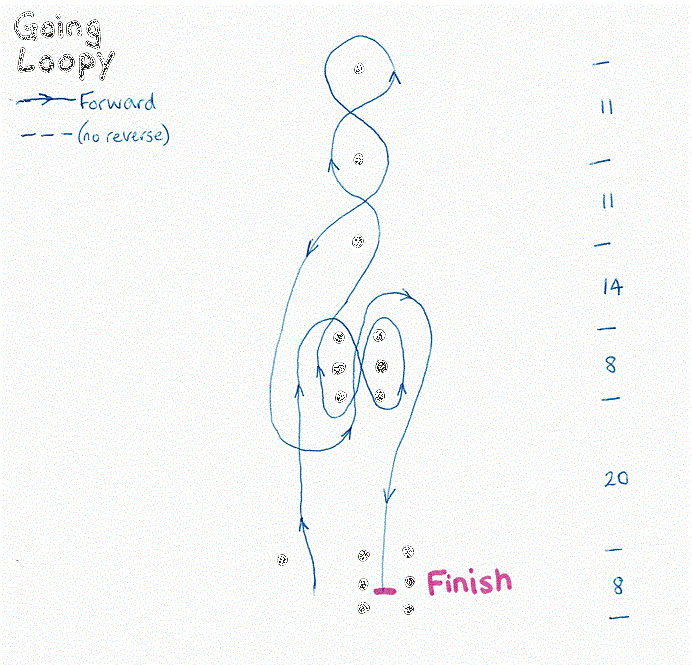 Going
Loopy
Forward
(no reverse)
11
11
14
8
20
8
Finish